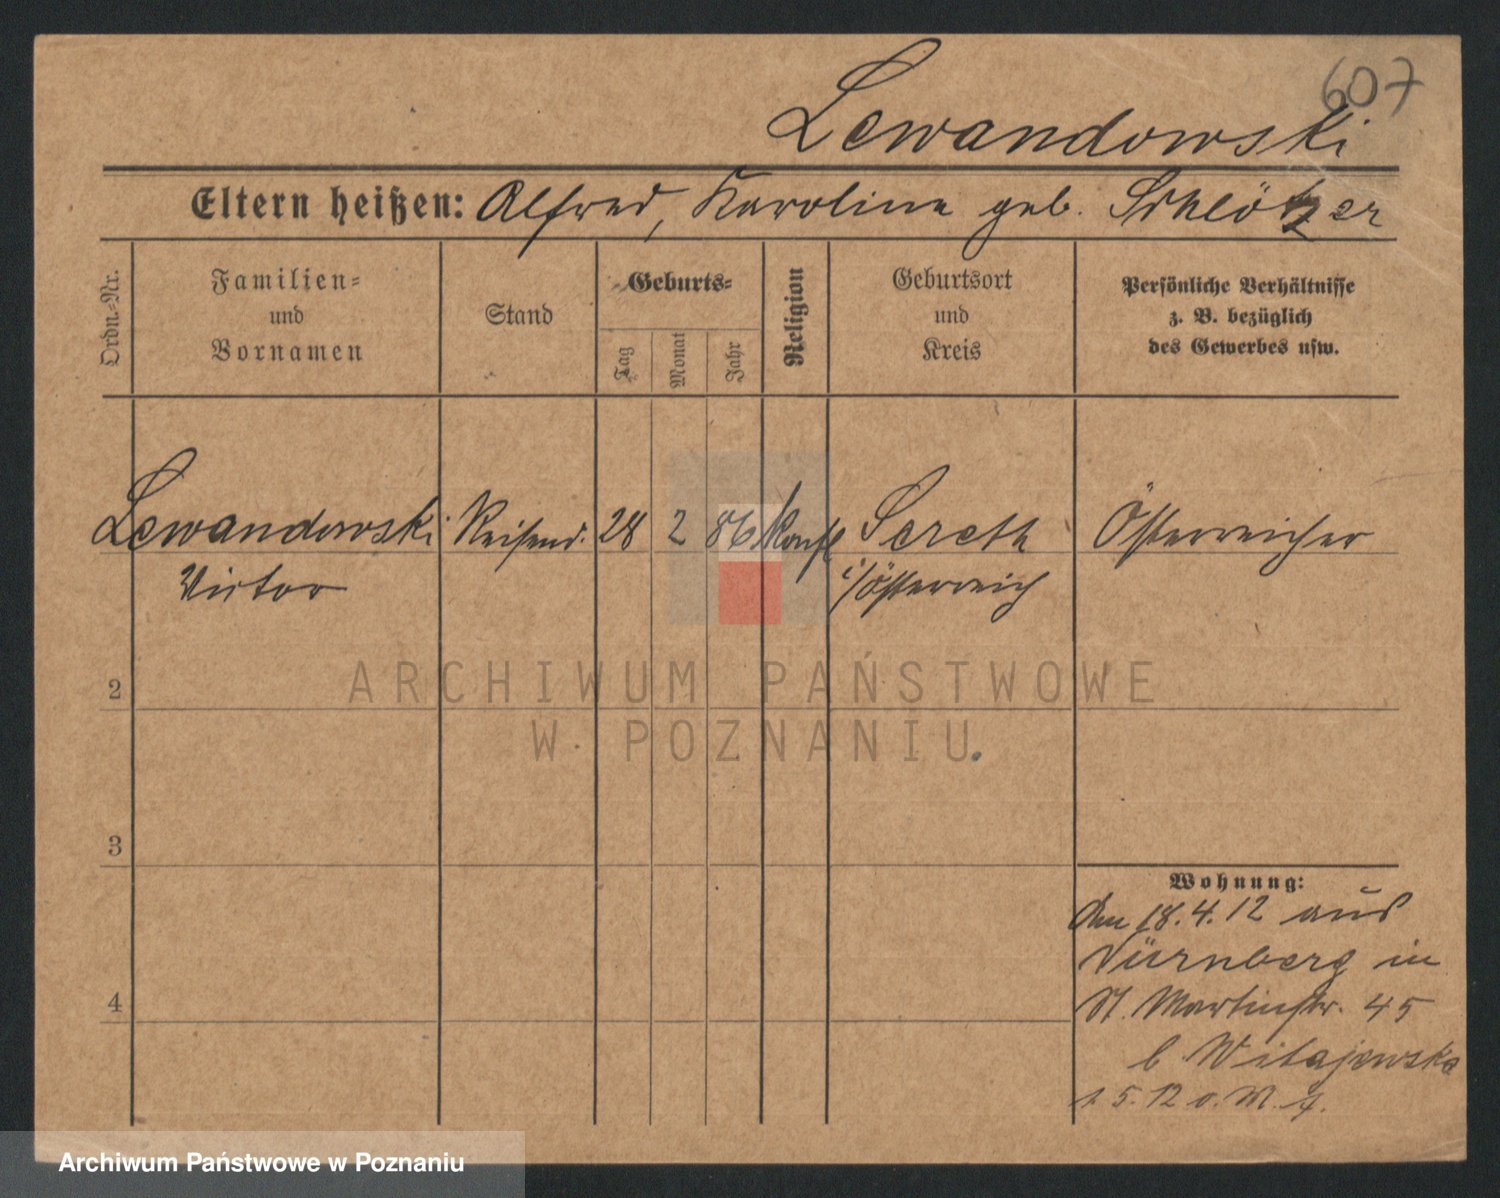 607
Lewandowski
Eltern heißen: Alfred, Karoline geb. Schlötzer
Ordn.-Nr.
Familien-
und
Vornamen
Stand
Geburts-
Tag
Monat
Jahr
Religion
Geburtsort
und
Kreis
Persönliche Verhältnisse
z. B. bezüglich
des Gewerbes usw.
Lewandowski Reisend. 28 2 86 Konfl Sereth Österreicher
Victor i/Österreich
2
3
4
Wohnung:
Am 18.4.12 aus
Nürnberg in
St. Martinstr. 45
b Witajewska
1.5.12 o. M.
ARCHIWUM PAŃSTWOWE
W POZNANIU
Archiwum Państwowe w Poznaniu